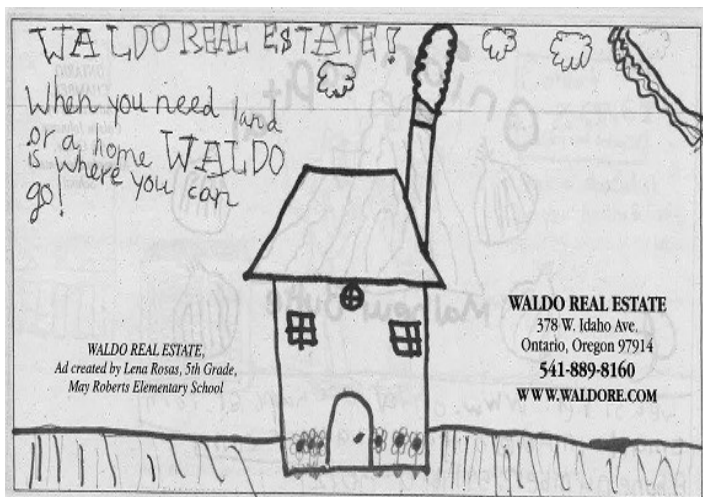 WALDO REAL ESTATE!
When you need land
or a home WALDO
is where you can
go!
WALDO REAL ESTATE,
Ad created by Lena Rosas, 5th Grade,
May Roberts Elementary School
WALDO REAL ESTATE
378 W. Idaho Ave.
Ontario, Oregon 97914
541-889-8160
WWW.WALDORE.COM